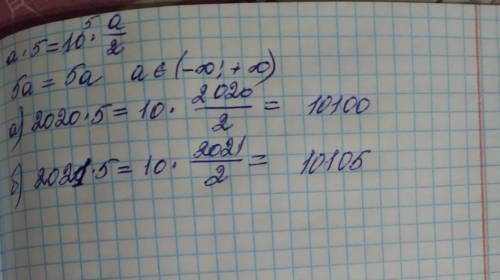 a · 5 = 10⁵ · a/2
5a = 5a a ∈ (-∞; +∞)
а) 2020 · 5 = 10 · 2020/2 = 10100
б) 2021 · 5 = 10 · 2021/2 = 10105